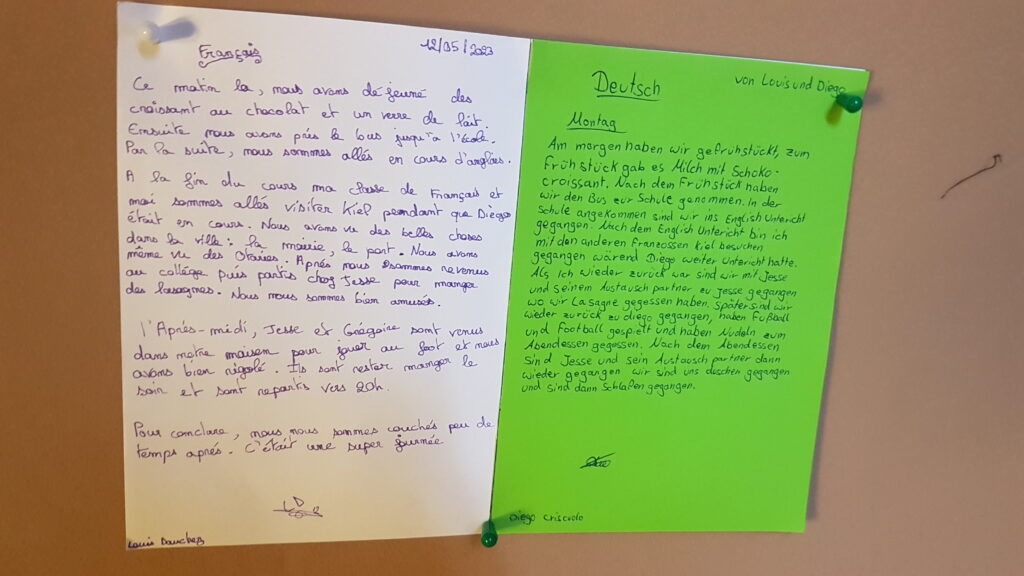 Français
12/05/2023
Ce matin la, nous avons déjeuné des
croissant au chocolat et un verre de lait.
Ensuite nous avons pris le bus jusqu'à l'école.
Par la suite, nous sommes allés en cours d'anglais.
A la fin du cours ma classe de Français et
moi sommes allés visiter Kiel pendant que Diego
était en cours. Nous avons vu des belles choses
dans la ville : la mairie, le port. Nous avons
même vu des Otaries. Après nous sommes revenus
au collège puis partis chez Jesse pour manger
des lasagnes. Nous nous sommes bien amusés.
l'Après-midi, Jesse et Grégoire sont venus
dans notre maison pour jouer au foot et nous
avons bien rigolé. Ils sont rester manger le
soir et sont repartis vers 20h.
Pour conclure, nous nous sommes couchés peu de
temps après. C'était une super journée
Louis
Deutsch
von Louis und Diego
Montag
Am morgen haben wir gefrühstückt, zum
Frühstück gab es Milch mit Schoko-
croissant. Nach dem Frühstück haben
wir den Bus zur Schule genommen. In der
Schule angekommen sind wir ins English Unterricht
gegangen. Nach dem English Unterricht bin ich
mit den anderen Franzossen Kiel besuchen
gegangen wärend Diego weiter Unterricht hatte.
Als ich wieder zurück war sind wir mit Jesse
und seinem Austausch partner zu Jesse gegangen
wo wir Lasagne gegessen haben. Später sind wir
wieder zurück zu diego gegangen, haben Fußball
und Football gespielt und haben Nudeln zum
Abendessen gegessen. Nach dem Abendessen
sind Jesse und sein Austausch partner dann
wieder gegangen wir sind uns duschen gegangen
und sind dann Schlafen gegangen.
Diego Criscuolo